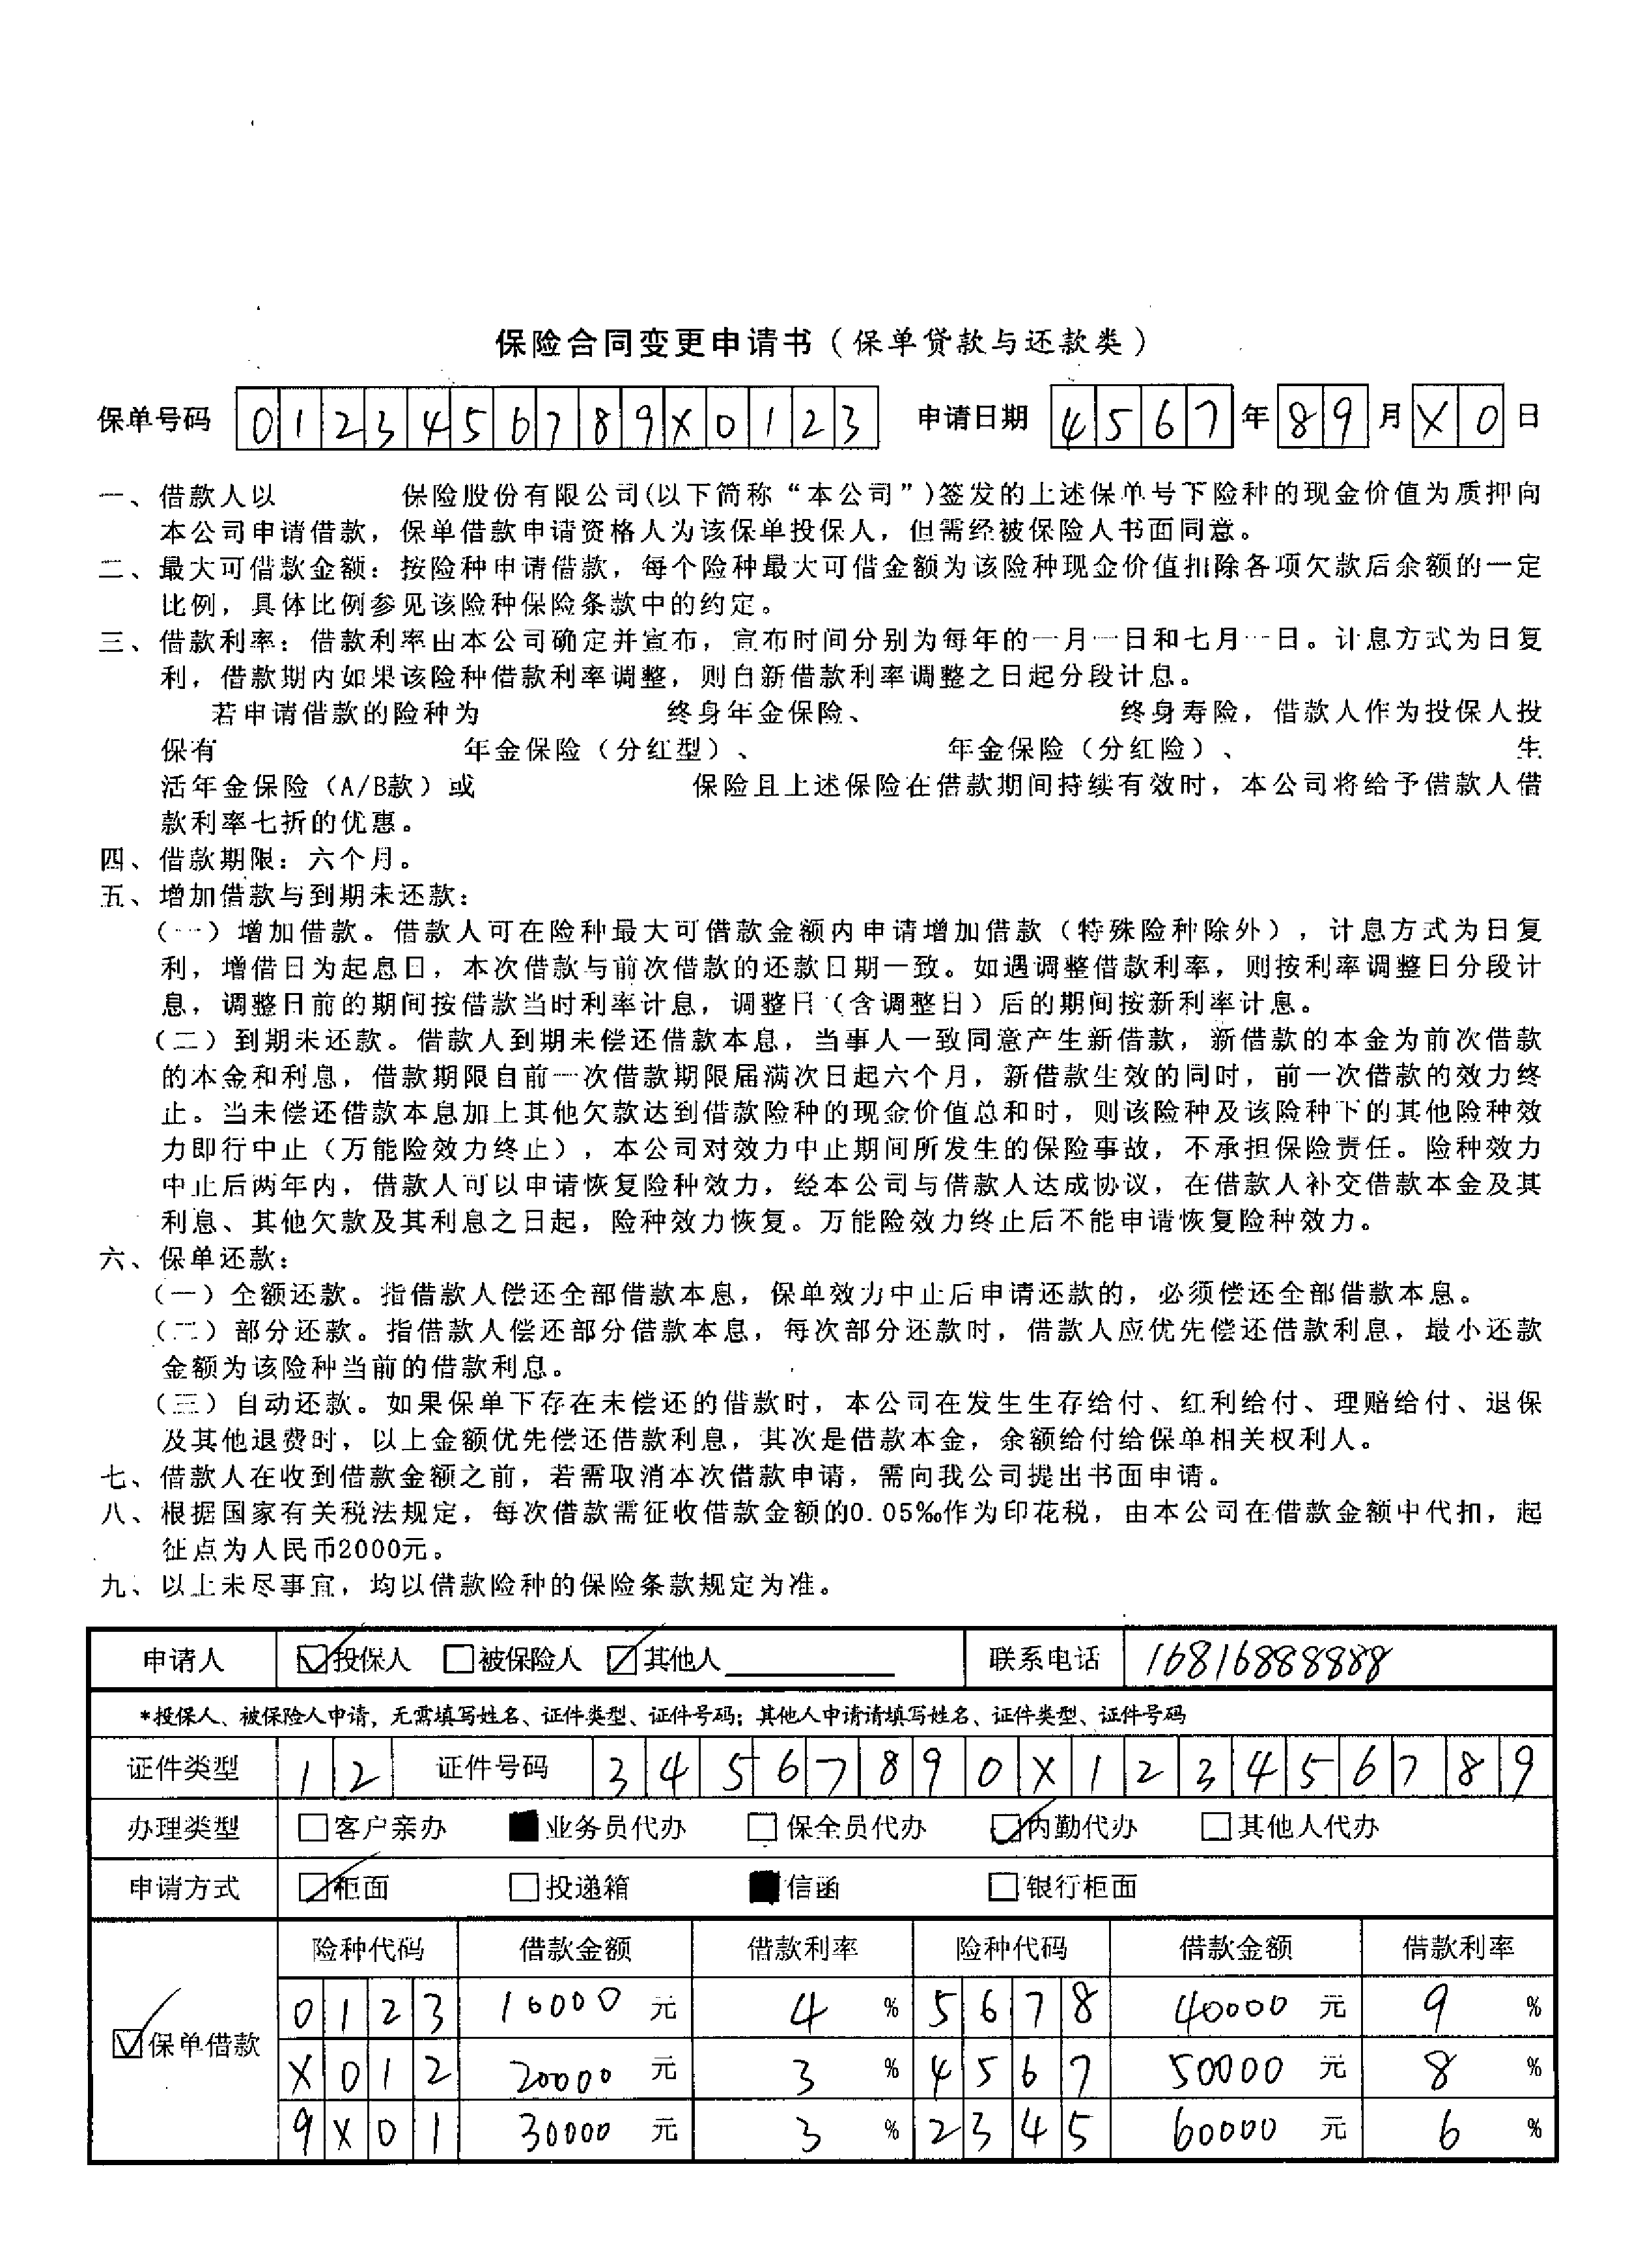 保险合同变更申请书（保单贷款与还款类）
保单号码 0 1 2 3 4 5 6 7 8 9 X 0 1 2 3 申请日期 4 5 6 7 年 8 9 月 X 0 日
一、借款人以 保险股份有限公司(以下简称“本公司”)签发的上述保单号下险种的现金价值为质押向
本公司申请借款，保单借款申请资格人为该保单投保人，但需经被保险人书面同意。
二、最大可借款金额：按险种申请借款，每个险种最大可借金额为该险种现金价值扣除各项欠款后余额的一定
比例，具体比例参见该险种保险条款中的约定。
三、借款利率：借款利率由本公司确定并宣布，宣布时间分别为每年的一月一日和七月一日。计息方式为日复
利，借款期内如果该险种借款利率调整，则自新借款利率调整之日起分段计息。
若申请借款的险种为 终身年金保险、 终身寿险，借款人作为投保人投
保有 年金保险（分红型）、 年金保险（分红险）、 生
活年金保险（A/B款）或 保险且上述保险在借款期间持续有效时，本公司将给予借款人借
款利率七折的优惠。
四、借款期限：六个月。
五、增加借款与到期未还款：
（一）增加借款。借款人可在险种最大可借款金额内申请增加借款（特殊险种除外），计息方式为日复
利，增借日为起息日，本次借款与前次借款的还款日期一致。如遇调整借款利率，则按利率调整日分段计
息，调整日前的期间按借款当时利率计息，调整日（含调整日）后的期间按新利率计息。
（二）到期未还款。借款人到期未偿还借款本息，当事人一致同意产生新借款，新借款的本金为前次借款
的本金和利息，借款期限自前一次借款期限届满次日起六个月，新借款生效的同时，前一次借款的效力终
止。当未偿还借款本息加上其他欠款达到借款险种的现金价值总和时，则该险种及该险种下的其他险种效
力即行中止（万能险效力终止），本公司对效力中止期间所发生的保险事故，不承担保险责任。险种效力
中止后两年内，借款人可以申请恢复险种效力，经本公司与借款人达成协议，在借款人补交借款本金及其
利息、其他欠款及其利息之日起，险种效力恢复。万能险效力终止后不能申请恢复险种效力。
六、保单还款：
（一）全额还款。指借款人偿还全部借款本息，保单效力中止后申请还款的，必须偿还全部借款本息。
（二）部分还款。指借款人偿还部分借款本息，每次部分还款时，借款人应优先偿还借款利息，最小还款
金额为该险种当前的借款利息。
（三）自动还款。如果保单下存在未偿还的借款时，本公司在发生生存给付、红利给付、理赔给付、退保
及其他退费时，以上金额优先偿还借款利息，其次是借款本金，余额给付给保单相关权利人。
七、借款人在收到借款金额之前，若需取消本次借款申请，需向我公司提出书面申请。
八、根据国家有关税法规定，每次借款需征收借款金额的0.05‰作为印花税，由本公司在借款金额中代扣，起
征点为人民币2000元。
九、以上未尽事宜，均以借款险种的保险条款规定为准。
申请人 ☑投保人 □被保险人 ☑其他人 联系电话 16816888888
*投保人、被保险人申请，无需填写姓名、证件类型、证件号码；其他人申请请填写姓名、证件类型、证件号码
证件类型 1 2 证件号码 3 4 5 6 7 8 9 0 X 1 2 3 4 5 6 7 8 9
办理类型 □客户亲办 ■业务员代办 □保全员代办 ☑内勤代办 □其他人代办
申请方式 ☑柜面 □投递箱 ■信函 □银行柜面
险种代码 借款金额 借款利率 险种代码 借款金额 借款利率
0 1 2 3 10000 元 4 % 5 6 7 8 40000 元 9 %
☑保单借款
X 0 1 2 20000 元 3 % 4 5 6 7 50000 元 8 %
9 X 0 1 30000 元 3 % 2 3 4 5 60000 元 6 %